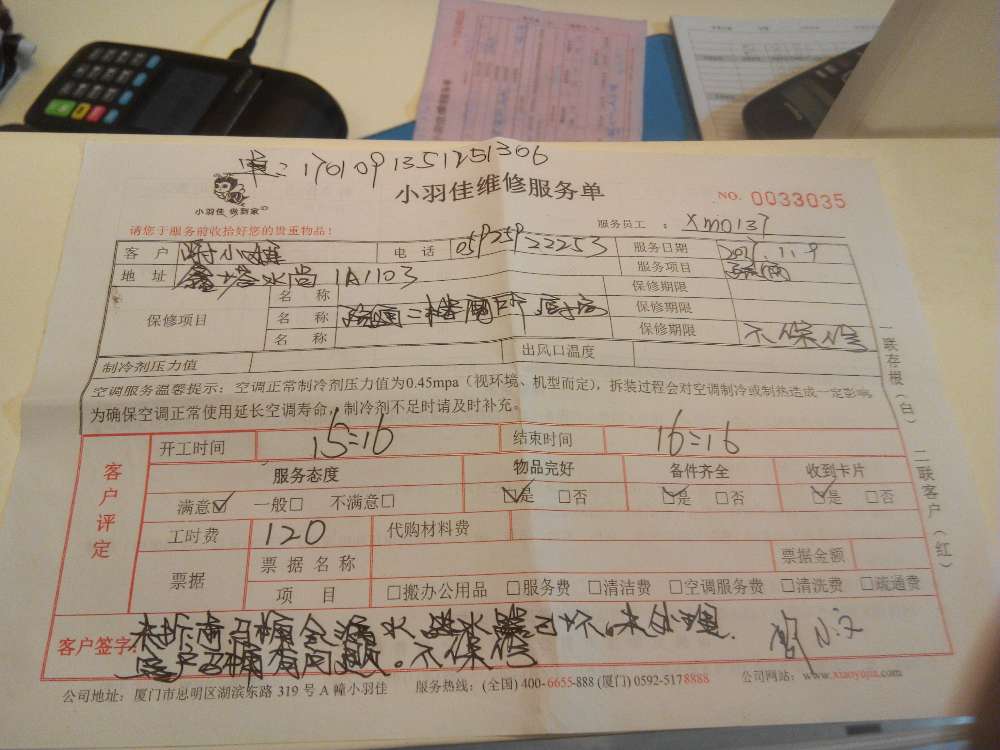 单：1701091351251306
小羽佳 做到家
小羽佳维修服务单
NO. 0033035
请您于服务前收拾好您的贵重物品！
服务员工 ： XM0137
客 户 小雄 电 话 05925922253 服务日期 2017.1.9
地 址 鑫塔水尚 1A1103 服务项目
保修项目
名 称 保修期限
名 称 二楼 厨房 保修期限
名 称 保修期限 不保修
制冷剂压力值 出风口温度
空调服务温馨提示：空调正常制冷剂压力值为0.45mpa（视环境、机型而定），拆装过程会对空调制冷或制热造成一定影响
为确保空调正常使用延长空调寿命，制冷剂不足时请及时补充。
一联存根（白） 二联客户（红）
客户评定
开工时间 15:16 结束时间 16:16
服务态度 物品完好 备件齐全 收到卡片
满意☑ 一般□ 不满意□ ☑是 □否 ☑是 □否 ☑是 □否
工时费 120 代购材料费
票据 票据名称 票据金额
项 目 □搬办公用品 □服务费 □清洁费 □空调服务费 □清洗费 □疏通费
客户签字： 水 器已坏.未处理.
有问题。不保修
公司地址：厦门市思明区湖滨东路 319 号 A 幢小羽佳 服务热线：(全国) 400-6655-888 (厦门) 0592-5178888 公司网站：www.xiaoyujia.com